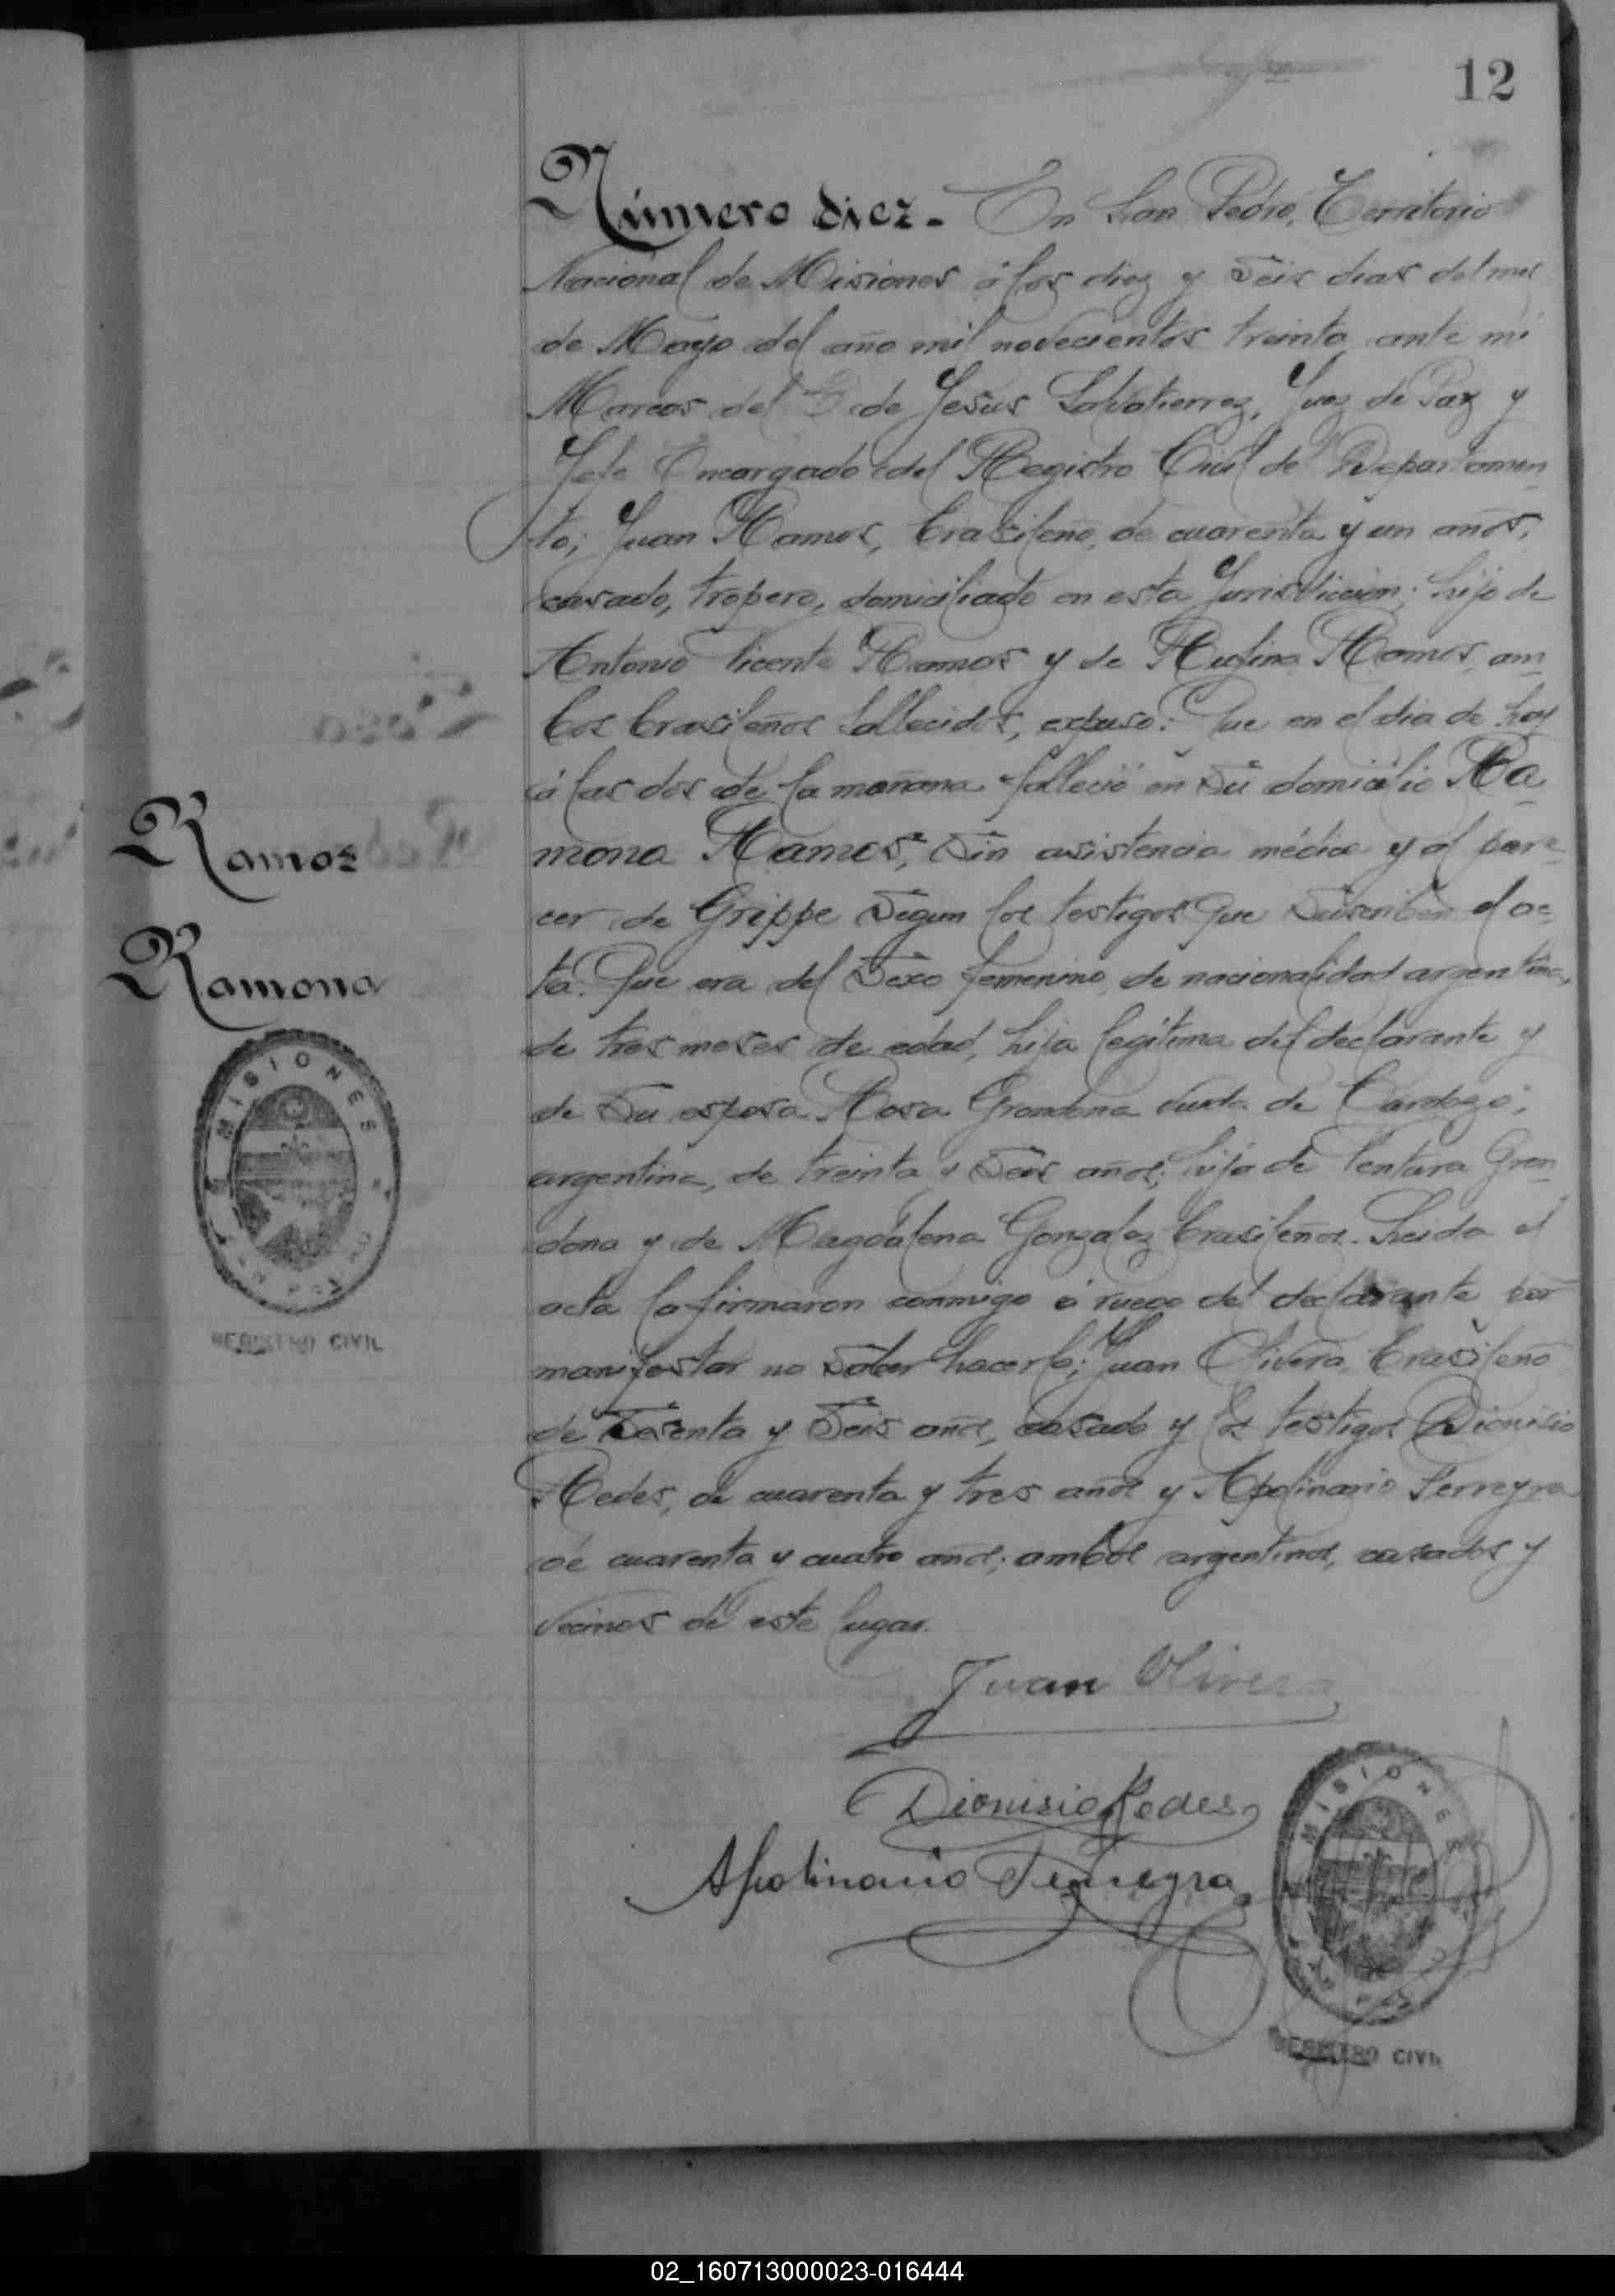 12
Número diez.- En San Pedro, Territorio
Nacional de Misiones á los diez y seis dias del mes
de Mayo del año mil novecientos treinta ante mi
Marcos del de Jesus Salvatierrez, Juez de Paz y
Jefe Encargado del Registro Civil del Departamen-
to; Juan Ramos, brasileño, de cuarenta y un años,
casado, tropero, domiciliado en esta Jurisdiccion; hijo de
Antonio Vicente Ramos y de Rufina Ramos, am-
bos brasileños fallecidos, expuso: Que en el dia de hoy
á las dos de la mañana falleció en su domicilio Ra-
mona Ramos, sin asistencia médica y al pare-
cer de Grippe segun los testigos que suscriben el ac-
ta. Que era del sexo femenino, de nacionalidad argentina,
de tres meses de edad, hija legitima del declarante y
de su esposa Rosa Grondona viuda de Cardozo;
argentina, de treinta y seis años; hija de Ventura Gron-
dona y de Magdalena Gonzalez brasileños. Leida el
acta la firmaron conmigo á ruego del declarante por
manifestar no saber hacerlo; Juan Olivera, brasileño
de sesenta y seis años, casado y los testigos Dionisio
Redes, de cuarenta y tres años y Apolinario Ferreyra
de cuarenta y cuatro años; ambos argentinos, casados y
vecinos de este lugar.
Ramos
Ramona
MISIONES
SAN PEDRO
REGISTRO CIVIL
Juan Olivera
Dionisio Redes
Apolinario Ferreyra
MISIONES
REGISTRO CIVIL
02_160713000023-016444